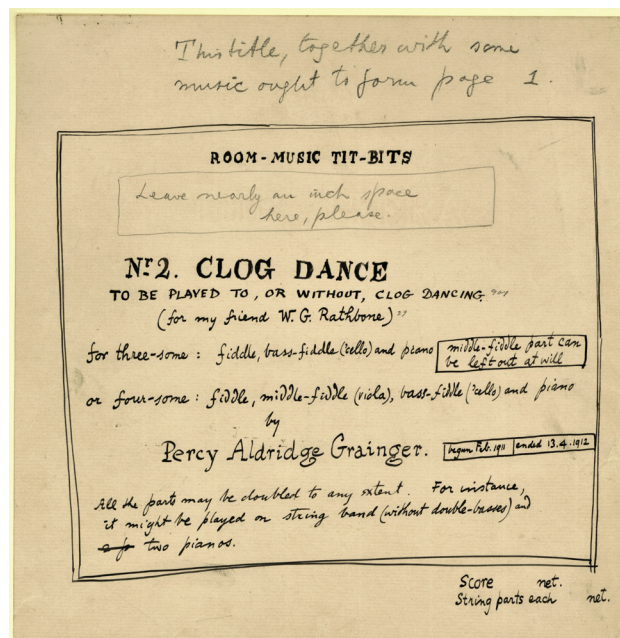 This title, together with some
music ought to form page 1.
ROOM-MUSIC TIT-BITS
Leave nearly an inch space
here, please.
Nr. 2. CLOG DANCE
TO BE PLAYED TO, OR WITHOUT, CLOG DANCING
(for my friend W. G. Rathbone)
for three-some: fiddle, bass-fiddle ('cello) and piano
middle-fiddle part can
be left out at will
or four-some: fiddle, middle-fiddle (viola), bass-fiddle ('cello) and piano
by
Percy Aldridge Grainger.
begun Feb. 1911 ended 13.4.1912
All the parts may be doubled to any extent. For instance,
it might be played on string band (without double-basses) and
two pianos.
Score net.
String parts each net.